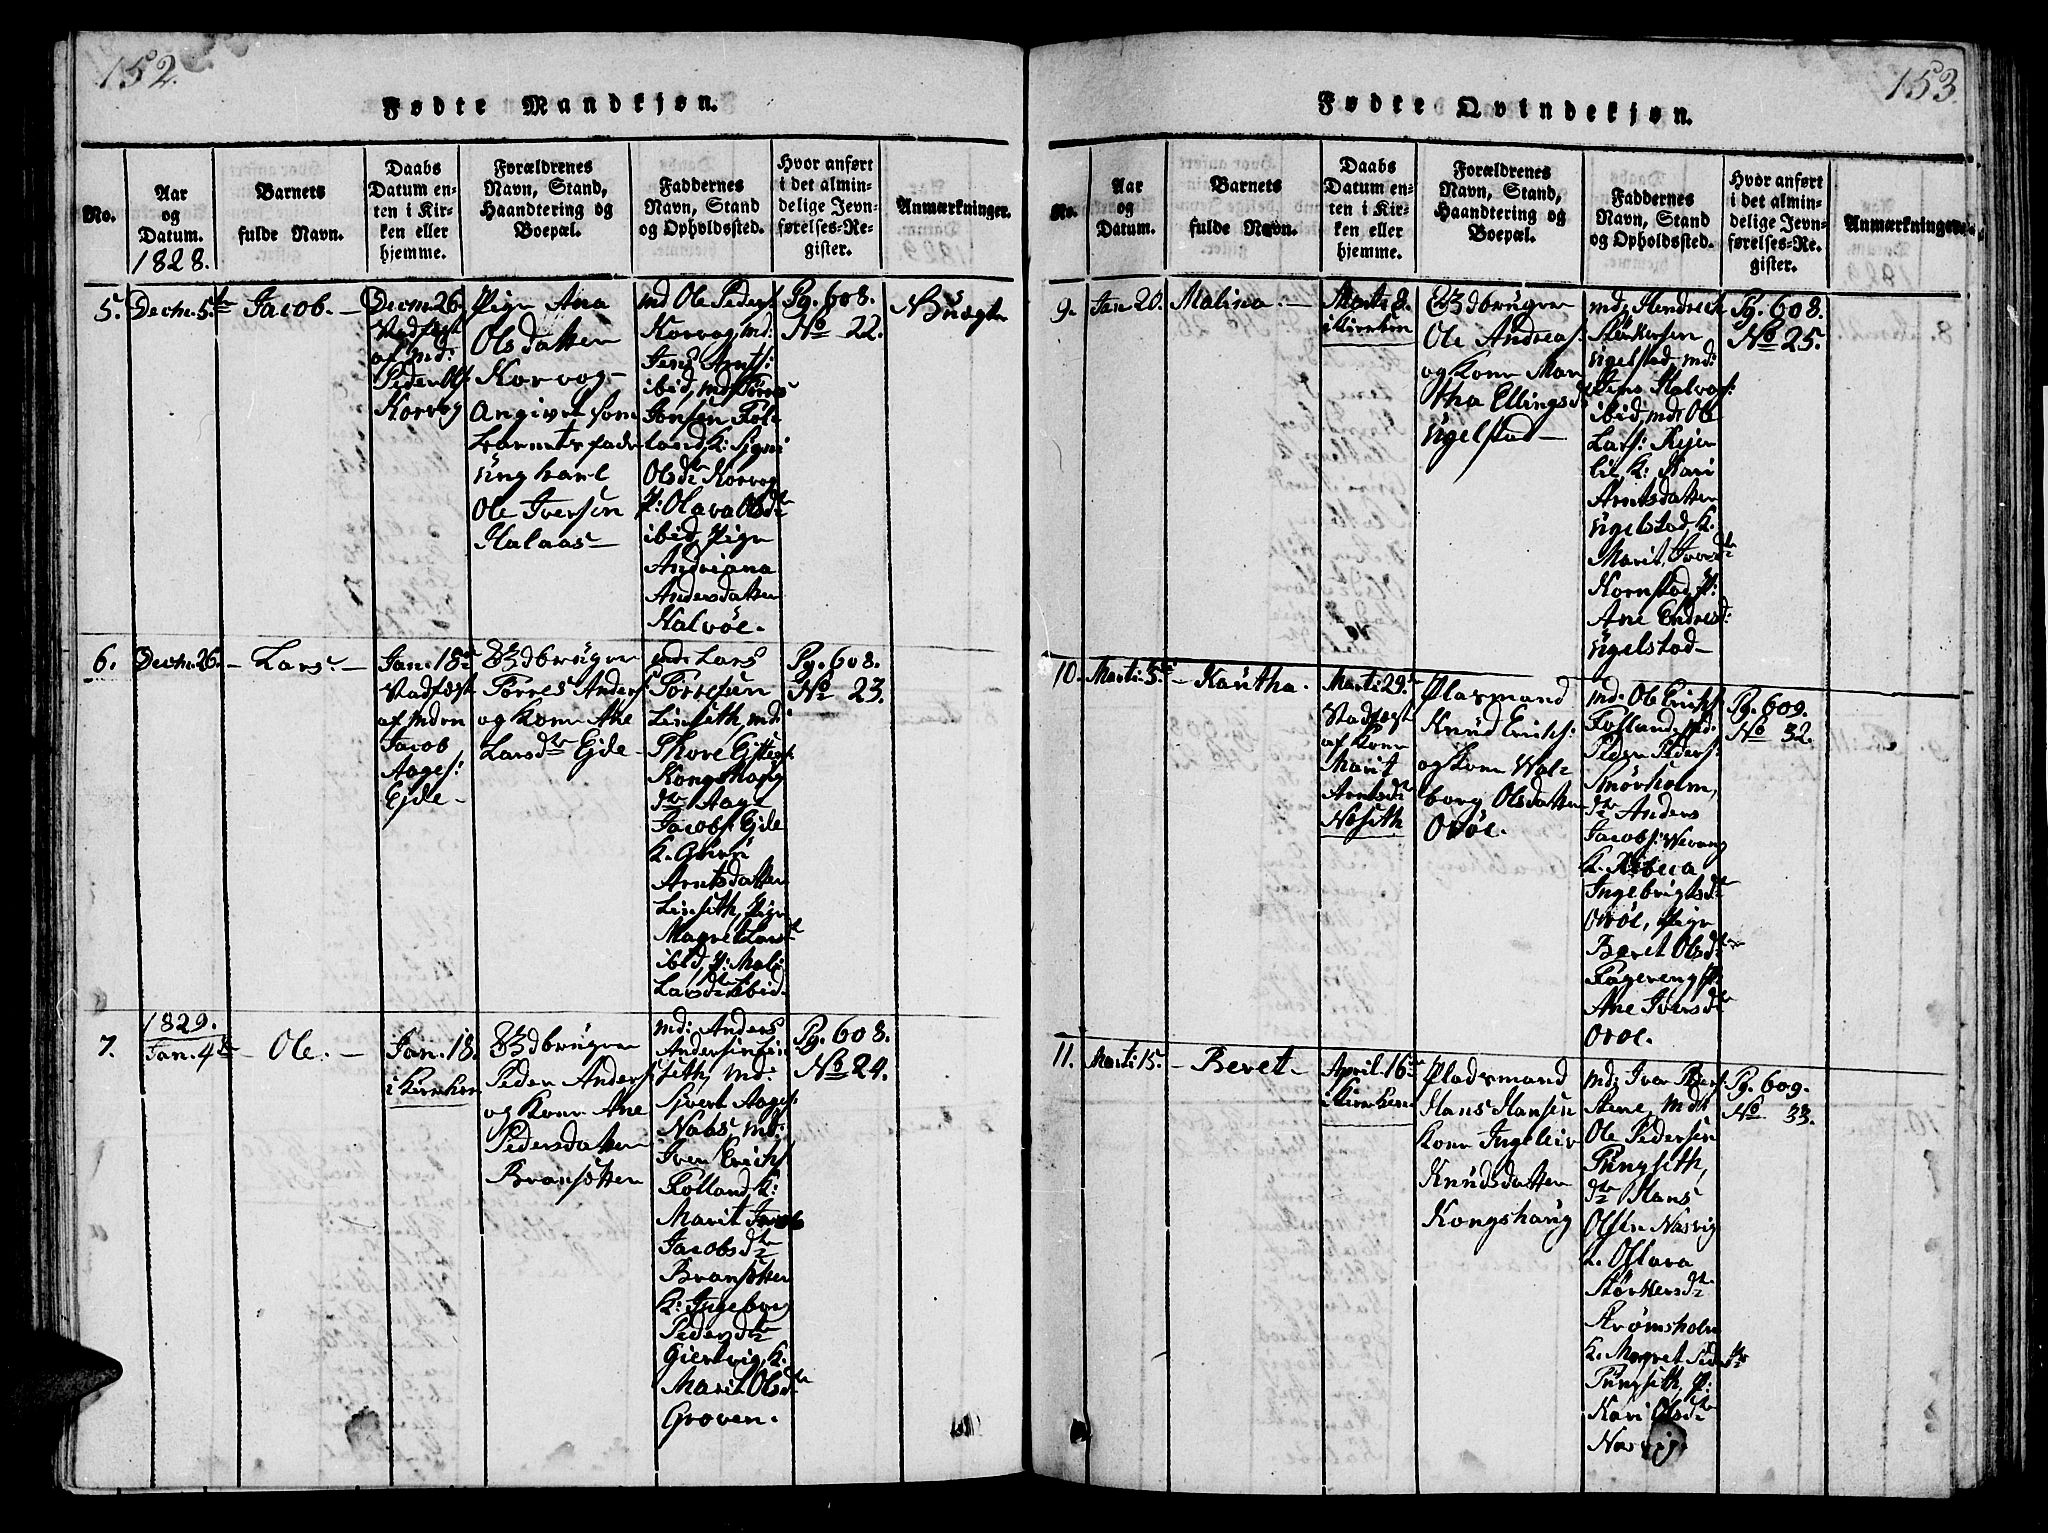 152.
Fødte Mandkjøn.
No.
Aar
og
Datum.
1828.
Barnets
fulde Navn.
Daabs
Datum en-
ten i Kir-
ken eller
hjemme.
Forældrenes
Navn, Stand,
Haandtering og
Boepæl.
Faddernes
Navn, Stand
og Opholdssted.
Hvor anført
i det almin-
delige Jevn-
førelses-Re-
gister.
Anmærkninger.
5.
Decbr. 5te
Jacob.
Decm. 26
af md:
Peder Ols:
Korvog
Pige Ana
Olsdatter
Korvog
Angiven som
barnets fader
Ungkarl
Ole Iversen
Kalaas
md Ole Peders:
Korvog, md:
Jens Arnts:
ibid, md: Torres
Jonsen
K: Signi
Olsdr Korvog
P: Olava Olsdr
ibid, Pige
Andriana
Andersdatter
Kalvöe.
Pg. 608.
No 22.
Uægte
6.
Decbr. 26.
Lars.
Jan. 18de
af mden
Jacob
Aages:
Ejde
Torres Anders:
og Kone Ane
Larsdr Ejde
md: Lars
Torresen
Linseth, md:
Thore
Kongshaug
dr Aage
Jacobs: Ejde
K.
Arntsdatter
Linseth, Pige
Magret Larsdr
ibid, P: Mali
Larsdr ibid.
Pg. 608.
No 23.
7.
1829.
Jan. 4de
Ole.
Jan. 18.
i Kirken
Peder Anders:
og Kone Ane
Pedersdatter
Bransetter
md: Anders
Andersen Lin
seth, md:
Sivert Aages:
Naas, md:
Iver Erichs:
Folland, K:
Marit
Jacobsdr
Bransetter
K: Ingeborg
Pedersdr
Giertvig, K.
Marit Olsdr
Groven.
Pg. 608.
No 24.
153.
Fødte Qvindekjøn.
No.
Aar
og
Datum.
Barnets
fulde Navn.
Daabs
Datum en-
ten i Kir-
ken eller
hjemme.
Forældrenes
Navn, Stand,
Haandtering og
Boepæl.
Faddernes
Navn, Stand
og Opholdssted.
Hvor anført
i det almin-
delige Jevn-
førelses-Re-
gister.
Anmærkninger.
9.
Jan 20.
Malina.
Marti 8.
i Kirken
Ole Andreas:
og Kone Mar
tha Ellingsd
Ugelstad
md: Hendrich
Størkersen
Ugelstad, md:
Jens Halvors:
ibid, md: Ole
Lars: Kejer
lie, K: Mari
Arntsdatter
Ugelstad, K.
Marit Iversdr
Kornstad, P:
Ane Endresd:
Ugelstad
Pg. 608.
No 25.
10.
Marti. 5te
Kantha.
Marti 29.
af Kone
Marit
Arntsdr
Naseth
Pladsmand
Knud Erichs:
og Kone Wal
borg Olsdatter
Oröe.
md: Ole Erichs:
Folland, md:
Peder Peders:
Smörholm,
dr Anders
Jacobs: Wevang
K. Rebeca
Ingebrigtsdr
Oröe, Pige
Beret Olsdr
Fagereng, P:
Ane Iversdr
Oröe.
Pg. 609.
No 32.
11.
Marti 15.
Beret
April 16de
i Kirken
Pladsmand
Hans Hansen
Kone Ingeleiv
Knudsdatter
Kongshaug
md: Iver Peders:
Stene, md:
Ole Pedersen
Pungseth,
dr Hans
Olsen Nasvig
K. Oslava
Størkersdr
Strömsholm
K. Magret Pedersdr
Pungseth, P:
Kari Olsdr
Nasvig.
Pg. 609.
No 33.